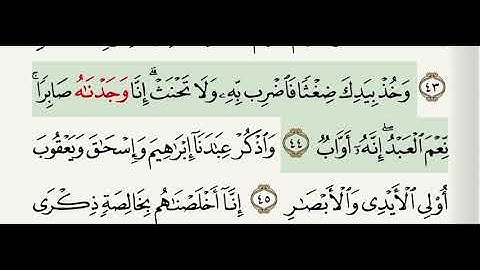 ٤٣ وَخُذْ بِيَدِكَ ضِغْثًا فَاضْرِب بِّهِۦ وَلَا تَحْنَثْ ۗ إِنَّا وَجَدْنَـٰهُ صَابِرًا ۚ
نِّعْمَ الْعَبْدُ ۖ إِنَّهُۥٓ أَوَّابٌ ٤٤ وَاذْكُرْ عِبَـٰدَنَآ إِبْرَٰهِيمَ وَإِسْحَـٰقَ وَيَعْقُوبَ
أُو۟لِى الْأَيْدِى وَالْأَبْصَـٰرِ ٤٥ إِنَّآ أَخْلَصْنَـٰهُم بِخَالِصَةٍ ذِكْرَى